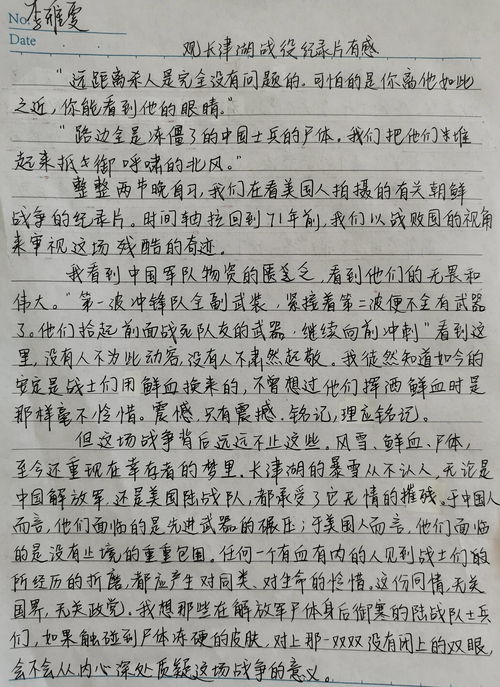 No 李雅雯
Date
观长津湖战役纪录片有感
"远距离杀人是完全没有问题的。可怕的是你离他如此
之近，你能看到他的眼睛。"
"路边全是冻僵了的中国士兵的尸体。我们把他们堆
起来抵御呼啸的北风。"
整整两节晚自习，我们在看美国人拍摄的有关朝鲜
战争的纪录片。时间轴拉回到71年前，我们以战败国的视角
来审视这场残酷的奇迹。
我看到中国军队物资的匮乏，看到他们的无畏和
伟大。"第一波冲锋队全副武装，紧接着第二波便不全有武器
了。他们拾起前面战死队友的武器，继续向前冲刺"看到这
里，没有人不为此动容，没有人不肃然起敬。我徒然知道如今的
安定是战士们用鲜血换来的，不曾想过他们挥洒鲜血时是
那样毫不怜惜。震憾，只有震撼。铭记，理应铭记。
但这场战争背后远远不止这些。风雪、鲜血、尸体，
至今还重现在幸存者的梦里。长津湖的暴雪从不认人，无论是
中国解放军，还是美国陆战队，都承受了它无情的摧残。于中国人
而言，他们面临的是先进武器的碾压；于美国人而言，他们面临
的是没有止境的重重包围。任何一个有血有肉的人见到战士们的
所经历的折磨，都应产生对同类、对生命的怜惜。这份同情，无关
国界，无关政党。我想那些在解放军尸体身后御寒的陆战队士兵
们，如果触碰到尸体冻硬的皮肤，对上那一双双没有闭上的双眼，
会不会从内心深处质疑这场战争的意义。